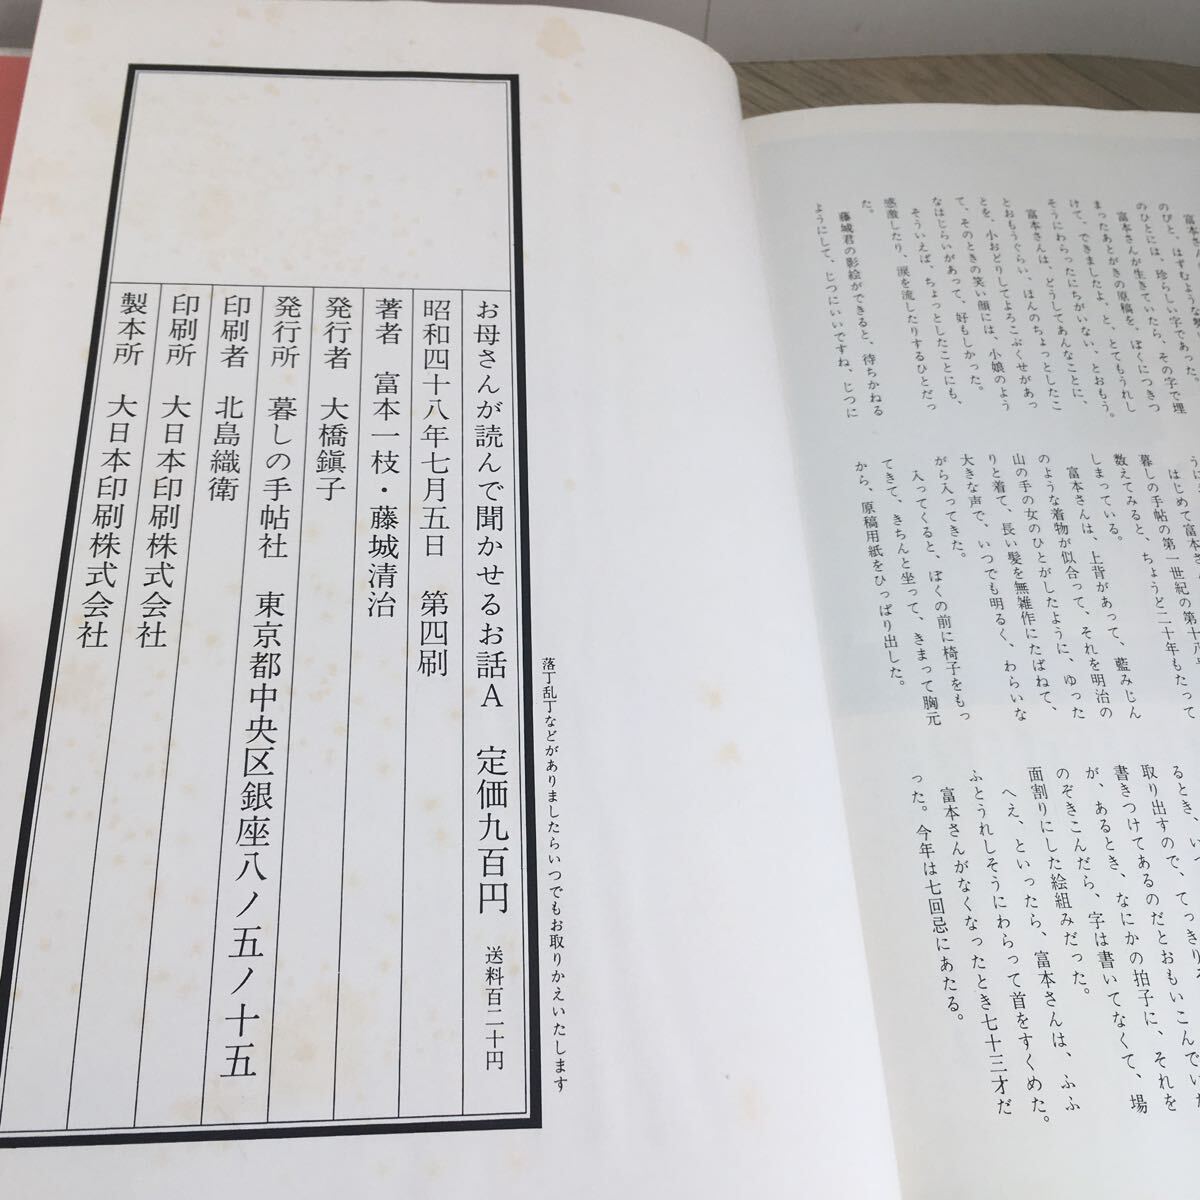 富本さん
のびと、はずむような
のひとには、珍らしい字であった。
富本さんが生きていたら、その字で埋
まったあとがきの原稿を、ぼくにつきつ
けて、できましたよ、と、とてもうれし
そうにわらったにちがいない、とおもう。
富本さんは、どうしてあんなことに、
とおもうぐらい、ほんのちょっとしたこ
とを、小おどりしてよろこぶくせがあっ
て、そのときの笑い顔には、小娘のよう
なはじらいがあって、好もしかった。
そういえば、ちょっとしたことにも、
感激したり、涙を流したりするひとだっ
た。
藤城君の影絵ができると、待ちかねる
ようにして、じつにいいですね、じつに
はじめて富本さん
暮しの手帖の第一世紀の第十八号
数えてみると、ちょうど二十年もたって
しまっている。
富本さんは、上背があって、藍みじん
のような着物が似合って、それを明治の
山の手の女のひとがしたように、ゆった
りと着て、長い髪を無雑作にたばねて、
大きな声で、いつでも明るく、わらいな
がら入ってきた。
入ってくると、ぼくの前に椅子をもっ
てきて、きちんと坐って、きまって胸元
から、原稿用紙をひっぱり出した。
るとき、い
取り出すので、てっきり
書きつけてあるのだとおもいこんでいた
が、あるとき、なにかの拍子に、それを
のぞきこんだら、字は書いてなくて、場
面割りにした絵組みだった。
へえ、といったら、富本さんは、ふふ
ふとうれしそうにわらって首をすくめた。
富本さんがなくなったとき七十三才だ
った。今年は七回忌にあたる。
落丁乱丁などがありましたらいつでもお取りかえいたします
お母さんが読んで聞かせるお話A 定価九百円 送料百二十円
昭和四十八年七月五日 第四刷
著者 富本一枝・藤城清治
発行者 大橋鎭子
発行所 暮しの手帖社 東京都中央区銀座八ノ五ノ十五
印刷者 北島織衛
印刷所 大日本印刷株式会社
製本所 大日本印刷株式会社